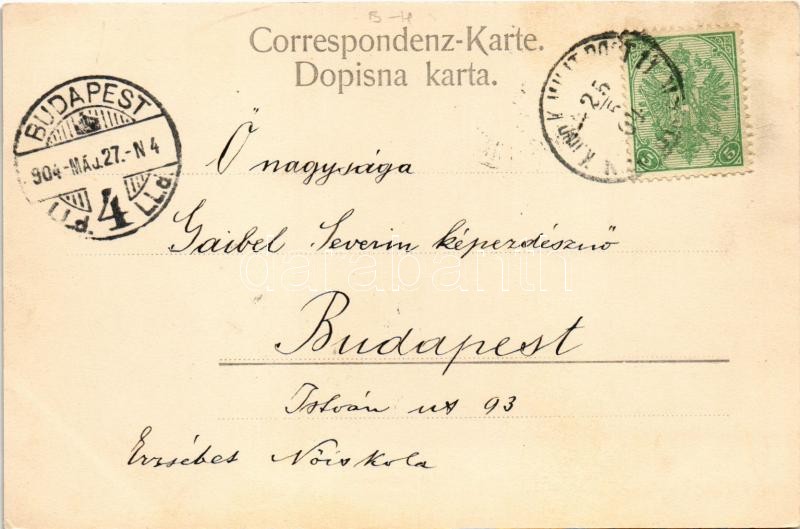 B-4
Correspondenz-Karte.
Dopisna karta.
BUDAPEST
904-MÁJ.27.-N 4
4
25
5
04
5 5
Ő nagysága
Gaibel Severin képerdésznő
darabanth
Budapest
István ut 93
Erzsébet Nőiskola